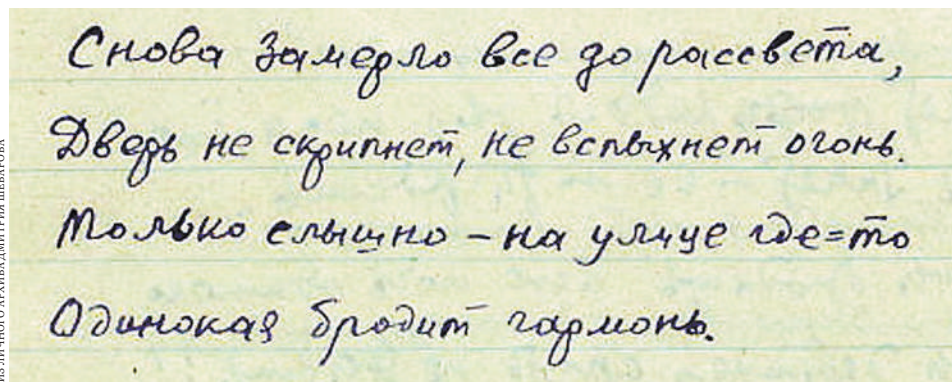 Снова замерло все до рассвета,
Дверь не скрипнет, не вспыхнет огонь.
Только слышно – на улице где=то
Одинокая бродит гармонь.
ИЗ ЛИЧНОГО АРХИВА ДМИТРИЯ ШЕВАРОВА